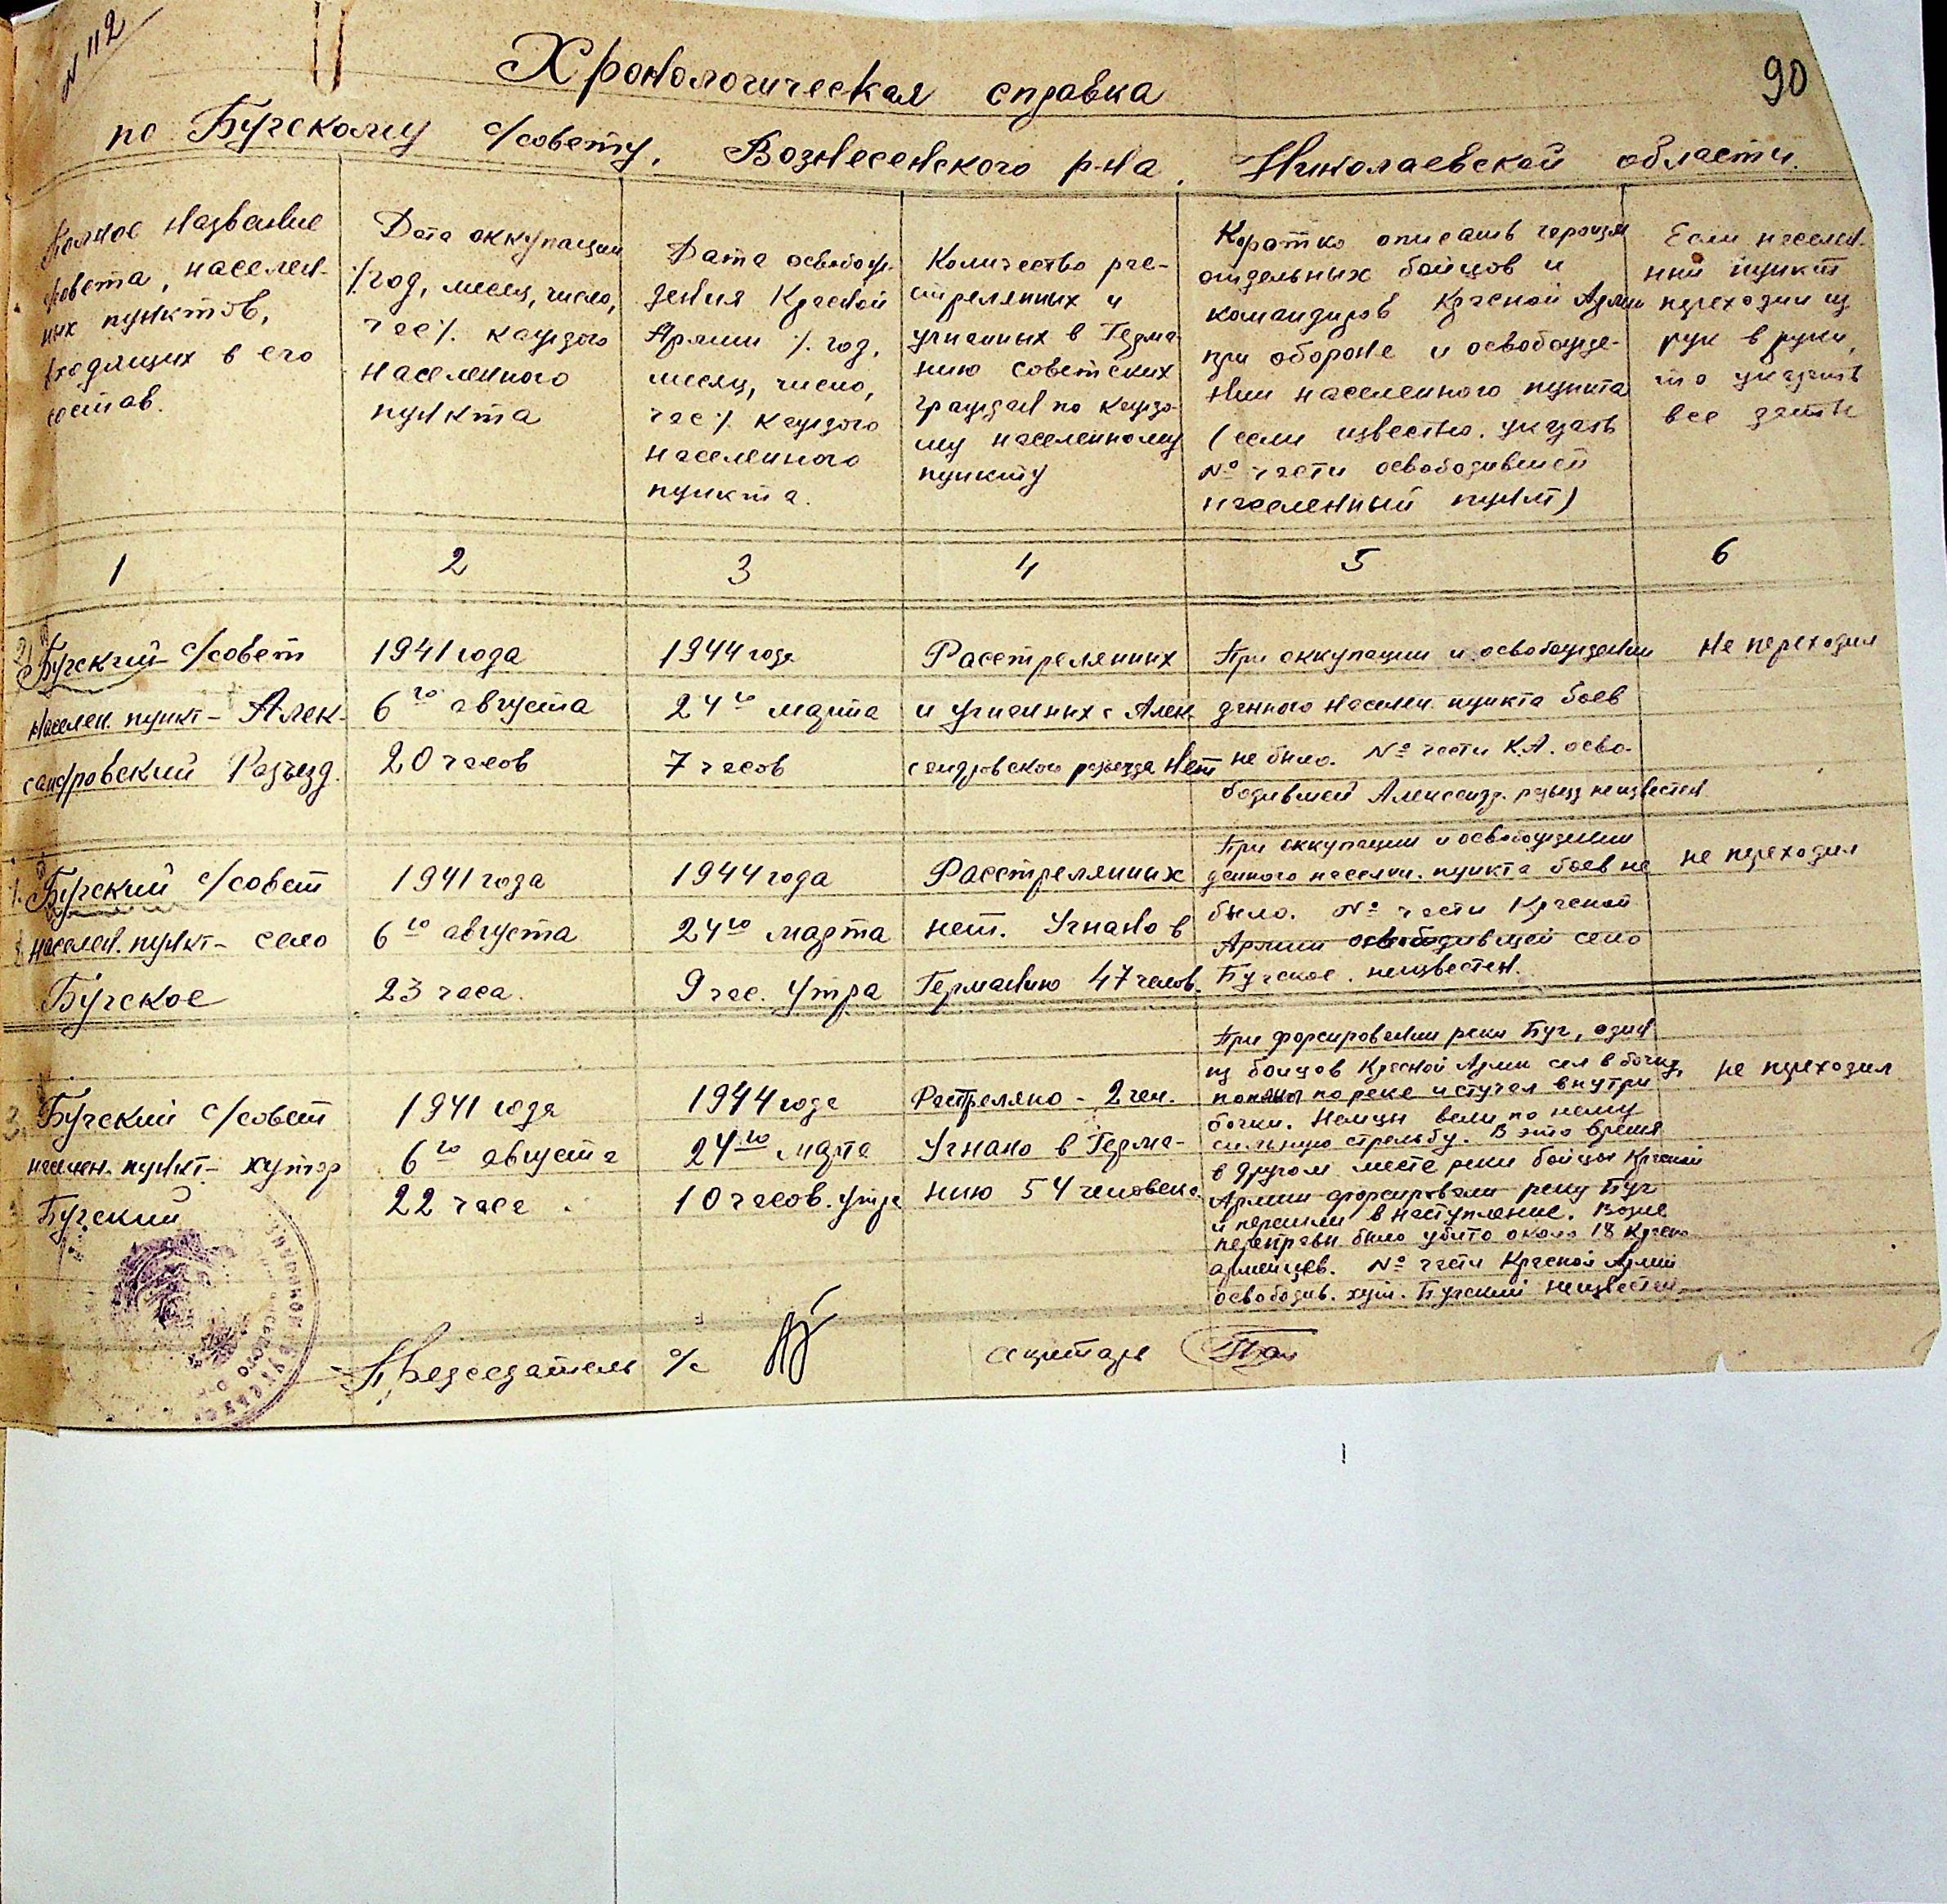 N 112
90
Хронологическая справка
по Бугскому с/совету, Вознесенского р-на, Николаевской области.
Полное название
совета, населен-
ных пунктов,
входящих в его
состав.
Дата оккупации
/год, месяц, число,
час/ каждого
населенного
пункта
Дата освобож-
дения Красной
Армии /год,
месяц, число,
час/ каждого
населенного
пункта.
Количество рас-
стрелянных и
угнанных в Герма-
нию советских
граждан по каждо-
му населенному
пункту
Коротко описать героизм
отдельных бойцов и
командиров Красной Армии
при обороне и освобожде-
нии населенного пункта
(если известно, указать
№ части освободившей
населенный пункт)
Если населен-
ный пункт
переходил из
рук в руки,
то указать
все даты
1 2 3 4 5 6
Бугский с/совет
населен. пункт - Алек-
сандровский Разъезд.
1941 года
6го августа
20 часов
1944 года
24го марта
7 часов
Расстрелянных
и угнанных с Алек
сандровского разъезда нет
При оккупации и освобождении
данного населен. пункта боев
не было. № части К.А. осво-
бодившей Александр. разъезд неизвестен
Не переходил
1. Бугский с/совет
населен. пункт - село
Бугское
1941 года
6го августа
23 часа.
1944 года
24го марта
9 час. утра
Расстрелянных
нет. Угнано в
Германию 47 челов.
При оккупации и освобождении
данного населен. пункта боев не
было. № части Красной
Армии освободившей село
Бугское, неизвестен.
не переходил
3. Бугский с/совет
населен. пункт - хутор
Бугский
1941 года
6го августа
22 часа.
1944 года
24го марта
10 часов. утра
Растреляно - 2 чел.
Угнано в Герма-
нию 54 человека
При форсировании реки Буг, один
из бойцов Красной Армии сел в бочку,
поплыл по реке и стучал внутри
бочки. Немцы вели по нему
сильную стрельбу. В это время
в другом месте реки бойцы Красной
Армии форсировали реку Буг
и перешли в наступление. Возле
переправы было убито около 18 красно
армейцев. № части Красной Армии
освободив. хут. Бугский неизвестен.
не переходил
Председатель с/с
секретарь